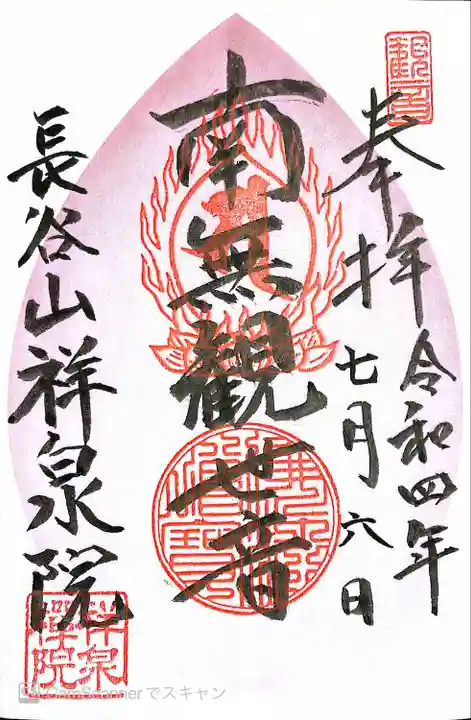 観音
奉拝
令和四年
七月六日
南無観世音
長谷山祥泉院
CamScanner でスキャン